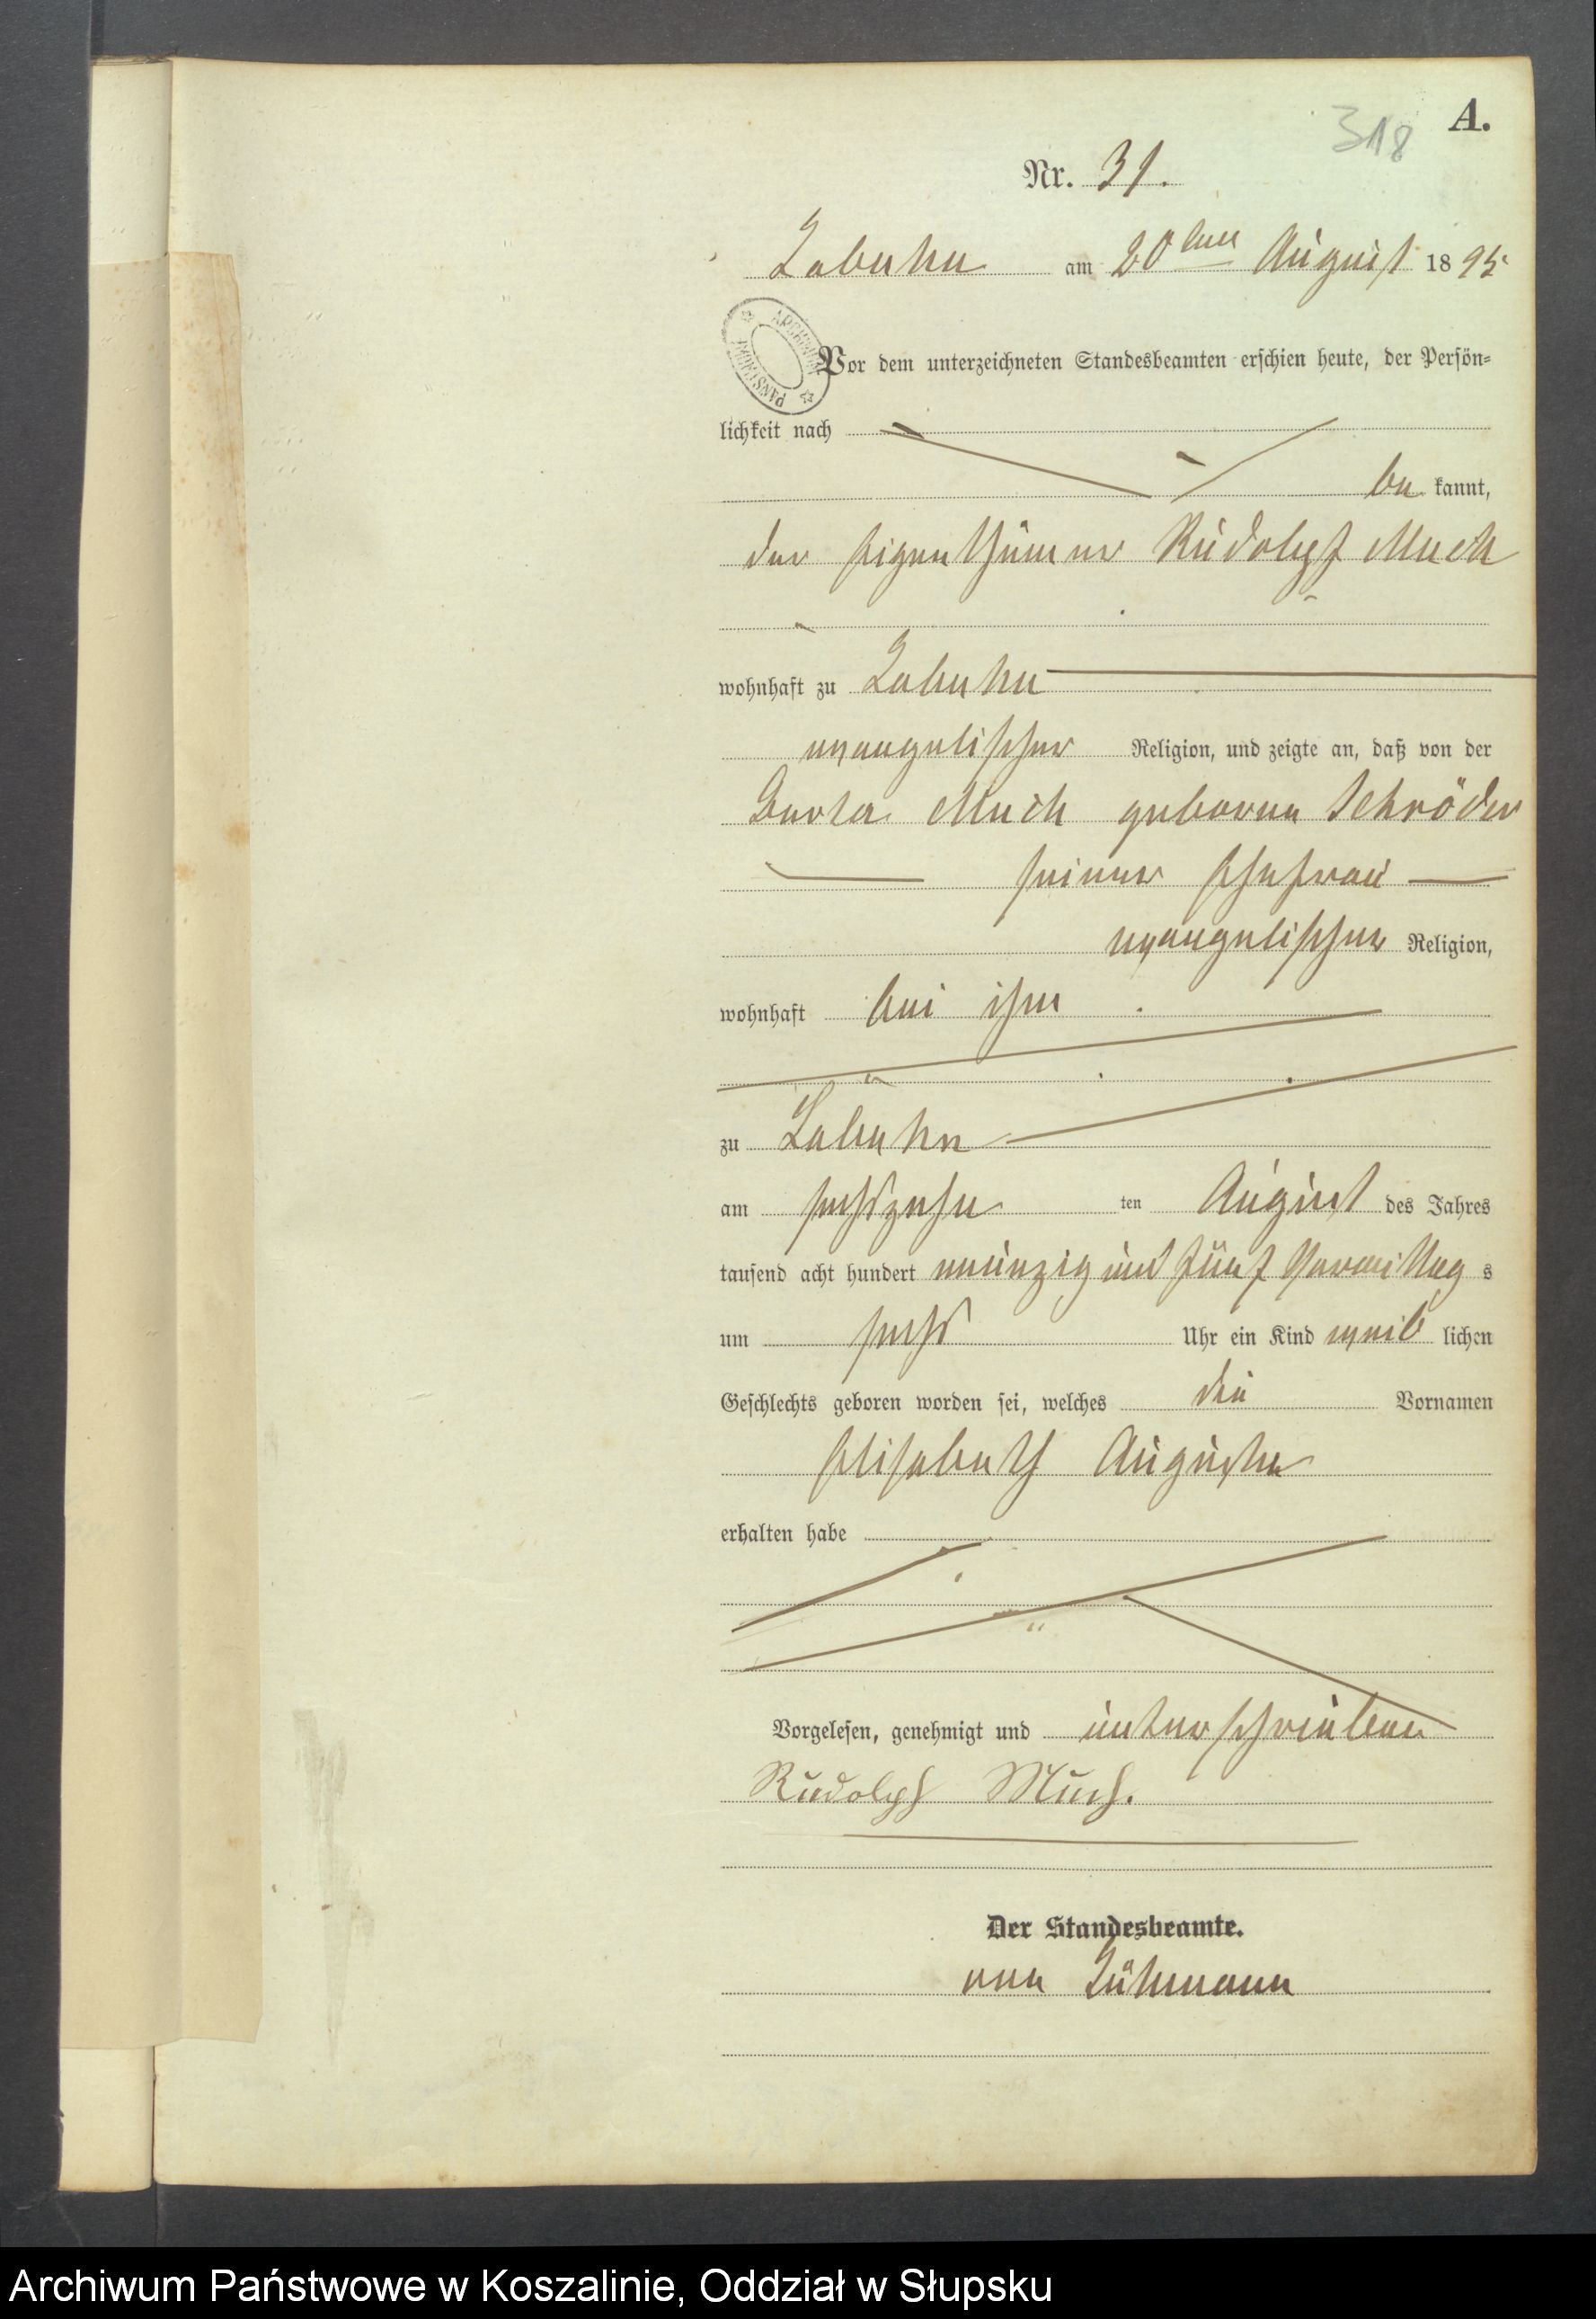 A.
318
Nr. 31.
Labehn am 20ten August 1895
Vor dem unterzeichneten Standesbeamten erschien heute, der Persön-
lichkeit nach
be kannt,
der Eigenthümer Rudolph Much
wohnhaft zu Labehn
evangelischer Religion, und zeigte an, daß von der
Berta Much geborene Schröder
seiner Ehefrau
evangelischer Religion,
wohnhaft bei ihm
zu Labehn
am sechszehn ten August des Jahres
tausend acht hundert neunzig und fünf Vormittag s
um sechs Uhr ein Kind weib lichen
Geschlechts geboren worden sei, welches die Vornamen
Elisabeth Auguste
erhalten habe
Vorgelesen, genehmigt und unterschrieben
Rudolph Much.
Der Standesbeamte.
von
Archiwum Państwowe w Koszalinie, Oddział w Słupsku